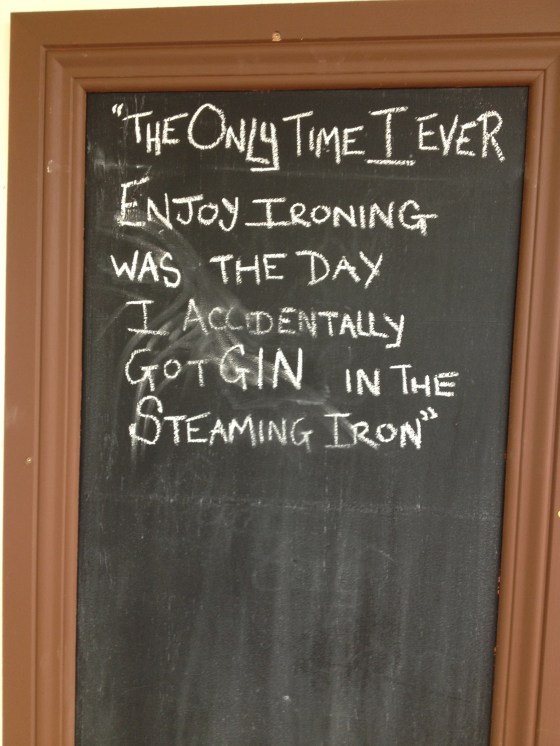 "THE ONLY TIME I EVER
ENJOY IRONING
WAS THE DAY
I ACCIDENTALLY
GOT GIN IN THE
STEAMING IRON"